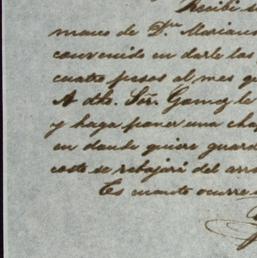 Recibí
manos de Dn. Mariano
convenido en darle las
cuatro pesos al mes q
A dho. Sór. Gomez le
y haga poner una
en donde quiere guard
coste se rebajará del arr
Es cuanto ocurre